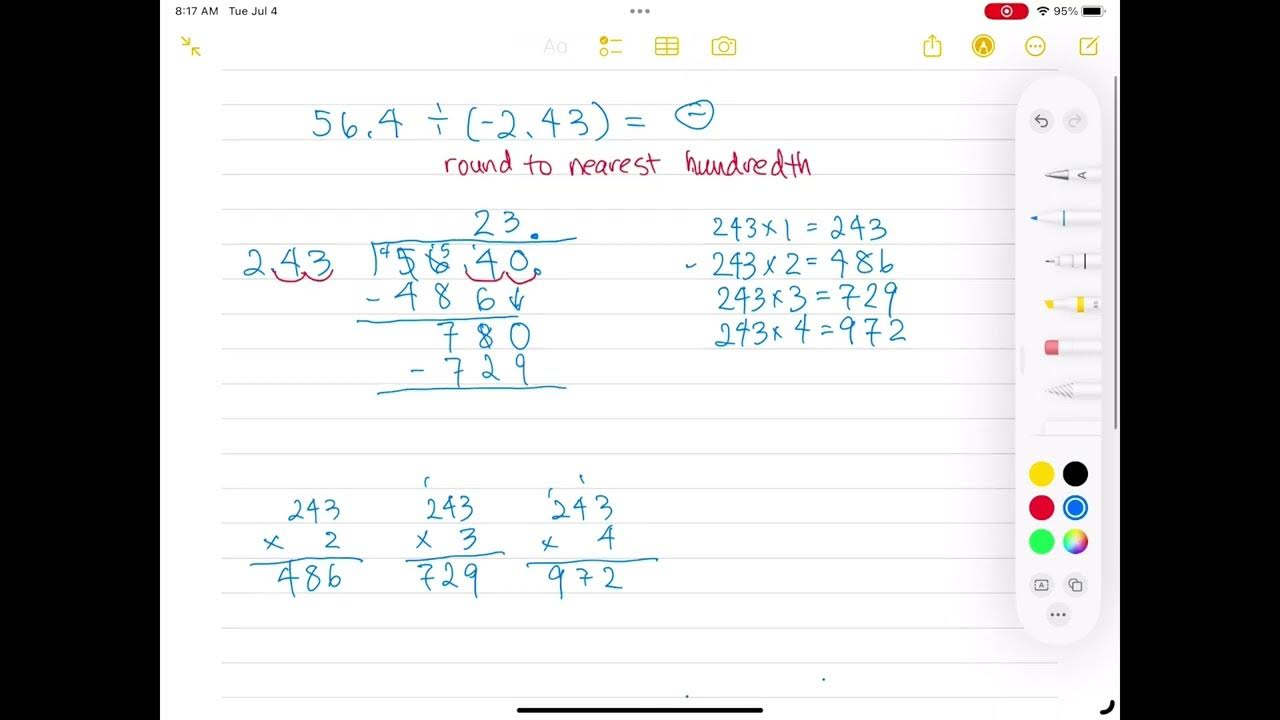 8:17 AM Tue Jul 4
95%
Aa
56.4 ÷ (-2.43) = -
round to nearest hundredth
23.
2.43 56.40.
4 15 1
- 486
780
- 729
243 × 1 = 243
- 243 × 2 = 486
243 × 3 = 729
243 × 4 = 972
243
× 2
486
1
243
× 3
729
1 1
243
× 4
972
A
80
A